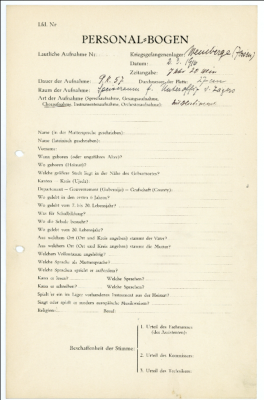 Lfd. Nr.
PERSONAL-BOGEN
Lautliche Aufnahme Nr. Kriegsgefangenenlager:
Datum:
Zeitangabe:
Dauer der Aufnahme: Durchmesser der Platte:
Raum der Aufnahme:
Art der Aufnahme (Sprechaufnahme, Gesangsaufnahme,
Choraufnahme, Instrumentenaufnahme, Orchesteraufnahme):
Name (in der Muttersprache geschrieben):
Name (lateinisch geschrieben):
Vorname:
Wann geboren (oder ungefähres Alter)?
Wo geboren (Heimat)?
Welche größere Stadt liegt in der Nähe des Geburtsortes?
Kanton — Kreis (Ujezd):
Departement — Gouvernement (Gubernija) — Grafschaft (County):
Wo gelebt in den ersten 6 Jahren?
Wo gelebt vom 7. bis 20. Lebensjahr?
Was für Schulbildung?
Wo die Schule besucht?
Wo gelebt vom 20. Lebensjahr?
Aus welchem Ort (Ort und Kreis angeben) stammt der Vater?
Aus welchem Ort (Ort und Kreis angeben) stammt die Mutter?
Welchem Volksstamm angehörig?
Welche Sprache als Muttersprache?
Welche Sprachen spricht er außerdem?
Kann er lesen? Welche Sprachen?
Kann er schreiben? Welche Sprachen?
Spielt er ein im Lager vorhandenes Instrument aus der Heimat?
Singt oder spielt er modern europäische Musikweisen?
Religion: Beruf:
Beschaffenheit der Stimme:
1. Urteil des Fachmannes
(des Assistenten):
2. Urteil des Kommissars:
3. Urteil des Technikers: